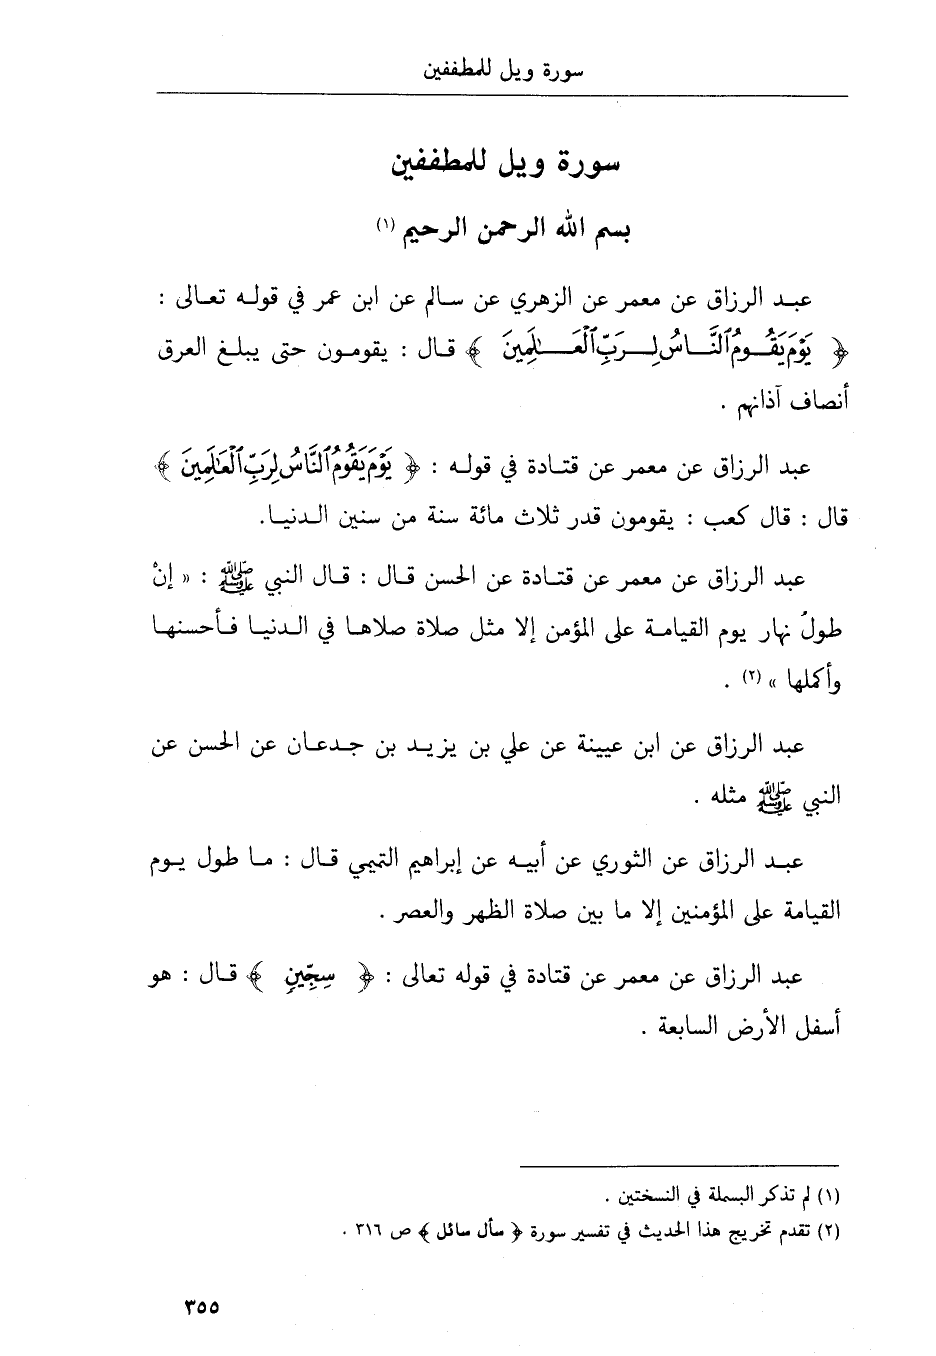 سورة ويل للمطففين
سورة ويل للمطففين
بسم الله الرحمن الرحيم (١)
عبد الرزاق عن معمر عن الزهري عن سالم عن ابن عمر في قوله تعالى :
﴿ يَوْمَ يَقُومُ ٱلنَّاسُ لِرَبِّ ٱلْعَٰلَمِينَ ﴾ قال : يقومون حتى يبلغ العرق
أنصاف آذانهم .
عبد الرزاق عن معمر عن قتادة في قوله : ﴿ يَوْمَ يَقُومُ ٱلنَّاسُ لِرَبِّ ٱلْعَٰلَمِينَ ﴾
قال : قال كعب : يقومون قدر ثلاث مائة سنة من سنين الدنيا.
عبد الرزاق عن معمر عن قتادة عن الحسن قال : قال النبي ﷺ : « إنْ
طولُ نهار يوم القيامة على المؤمن إلا مثل صلاة صلاها في الدنيا فأحسنها
وأكملها » (٢) .
عبد الرزاق عن ابن عيينة عن علي بن يزيد بن جدعان عن الحسن عن
النبي ﷺ مثله .
عبد الرزاق عن الثوري عن أبيه عن إبراهيم التيمي قال : ما طول يوم
القيامة على المؤمنين إلا ما بين صلاة الظهر والعصر .
عبد الرزاق عن معمر عن قتادة في قوله تعالى : ﴿ سِجِّينٍ ﴾ قال : هو
أسفل الأرض السابعة .
(١) لم تذكر البسملة في النسختين .
(٢) تقدم تخريج هذا الحديث في تفسير سورة ﴿ سأل سائل ﴾ ص ٣١٦ .
٣٥٥